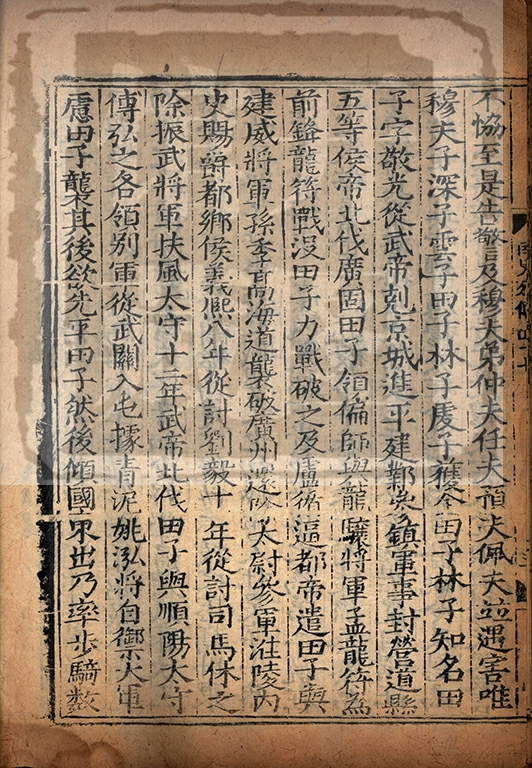 不協至是告警及穆夫弟仲夫任夫預夫佩夫並遇害唯
穆夫子深子雲子田子林子虔子獲全田子林子知名田
子字敬光從武帝剋京城進平建鄴參鎮軍事封營道縣
五等侯帝北伐廣固田子領偏師與龍驤將軍孟龍符為
前鋒龍符戰没田子力戰破之及盧循逼都帝遣田子與
建威將軍孫季髙海道襲破廣州還除太尉參軍淮陵内
史賜爵都鄉侯義熙八年從討劉毅十一年從討司馬休之
除振武將軍扶風太守十二年武帝北伐田子與順陽太守
傅弘之各領别軍從武關入屯據青泥姚泓將自禦大軍
慮田子襲其後欲先平田子然後傾國東出乃率步騎數